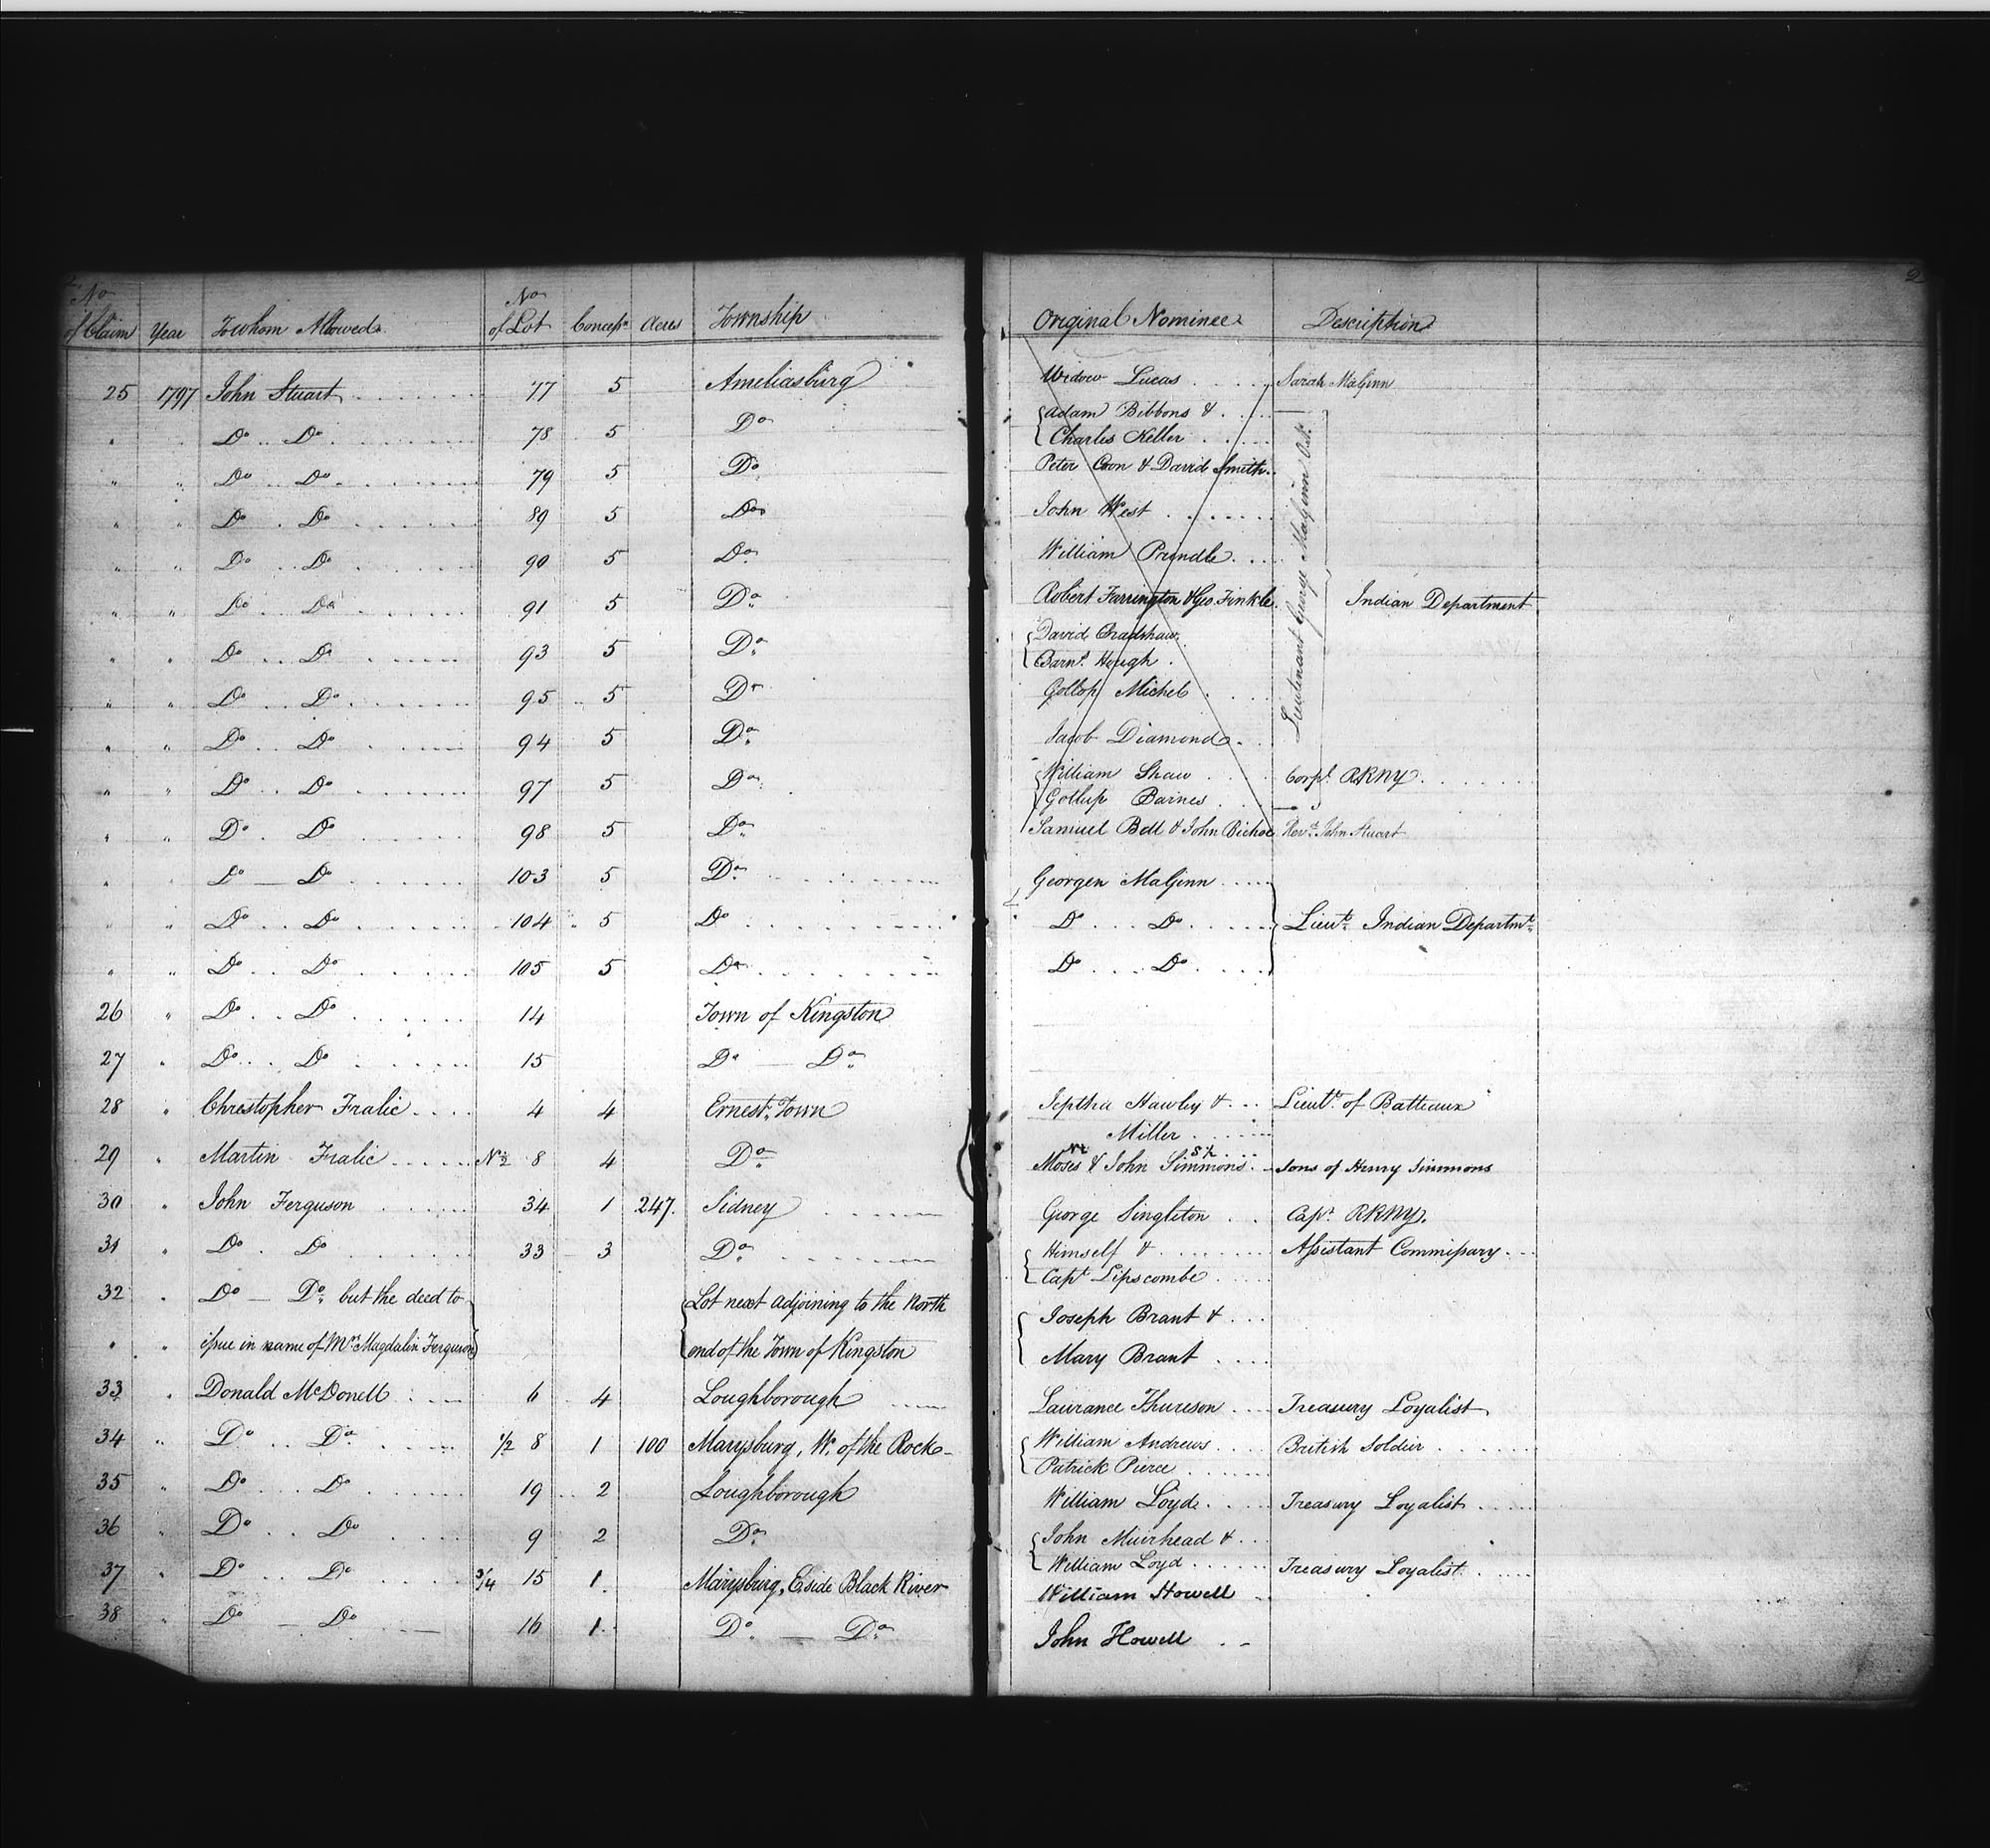 2
No
of Claim Year To whom Allowed No of Lot Concess.n Acres Township Original Nominee Description
25 1797 John Stuart 77 5 Ameliasburg Widow Lucas Sarah McGinn
" " Do Do 78 5 Do {Adam Bibbons &
Charles Keller
" " Do Do 79 5 Do Peter Coon & David Smith
" " Do Do 89 5 Do John West
" " Do Do 90 5 Do William Prindle
" " Do Do 91 5 Do Robert Farrington & Geo. Finkle Indian Department
" " Do Do 93 5 Do {David Bradshaw
Barn.d Hough
" " Do Do 95 5 Do Gollop Michel
" " Do Do 94 5 Do Jacob Diamond
Lieutenant George
" " Do Do 97 5 Do {William Shaw Corp.l RRNY
Gollup Barnes
" " Do Do 98 5 Do Samuel Bell & John Rev.d John Stuart
" " Do Do 103 5 Do Georgen McGinn
" " Do Do 104 5 Do Do Do } Lieut.t Indian Departm.t
" " Do Do 105 5 Do Do Do
26 " Do Do 14 Town of Kingston
27 " Do Do 15 Do Do
28 " Chrestopher Fralic 4 4 Ernest Town Jeptha Hawley & Lieut.t of Batteaux
Miller
29 " Martin Fralic N ½ 8 4 Do Moses & John Simmons Sons of Henry Simmons
30 " John Ferguson 34 1 247 Sidney George Singleton Cap.t RRNY
31 " Do Do 33 3 Do {Himself & Assistant Commissary
Cap.t Lipscombe
32 " Do Do but the deed to} {Lot next adjoining to the North {Joseph Brant &
" " issue in name of Mrs Magdalin Ferguson} end of the Town of Kingston Mary Brant
33 " Donald McDonell 6 4 Loughborough Laurance Thureson Treasury Loyalist
34 " Do Do ½ 8 1 100 Marysburg, W. of the Rock {William Andrews British Soldier
Patrick Pierce
35 " Do Do 19 2 Loughborough William Loyd Treasury Loyalist
36 " Do Do 9 2 Do {John Muirhead &
William Loyd Treasury Loyalist
37 " Do Do ¾ 15 1 Marysburg, E. side Black River William Howell
38 " Do Do 16 1 Do Do John Howell